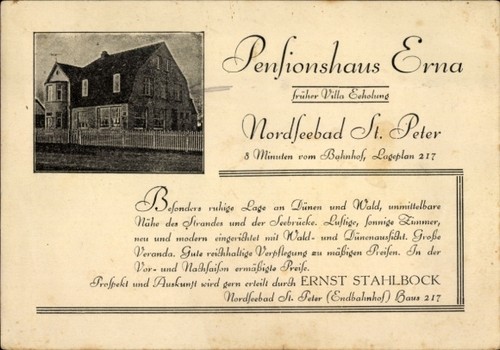 Pensionshaus Erna
früher Villa Erholung
Nordseebad St. Peter
8 Minuten vom Bahnhof, Lageplan 217
Besonders ruhige Lage an Dünen und Wald, unmittelbare
Nähe des Strandes und der Seebrücke. Luftige, sonnige Zimmer,
neu und modern eingerichtet mit Wald- und Dünenaussicht. Große
Veranda. Gute reichhaltige Verpflegung zu mäßigen Preisen. In der
Vor- und Nachsaison ermäßigte Preise.
Prospekt und Auskunft wird gern erteilt durch ERNST STAHLBOCK
Nordseebad St. Peter (Endbahnhof) Haus 217